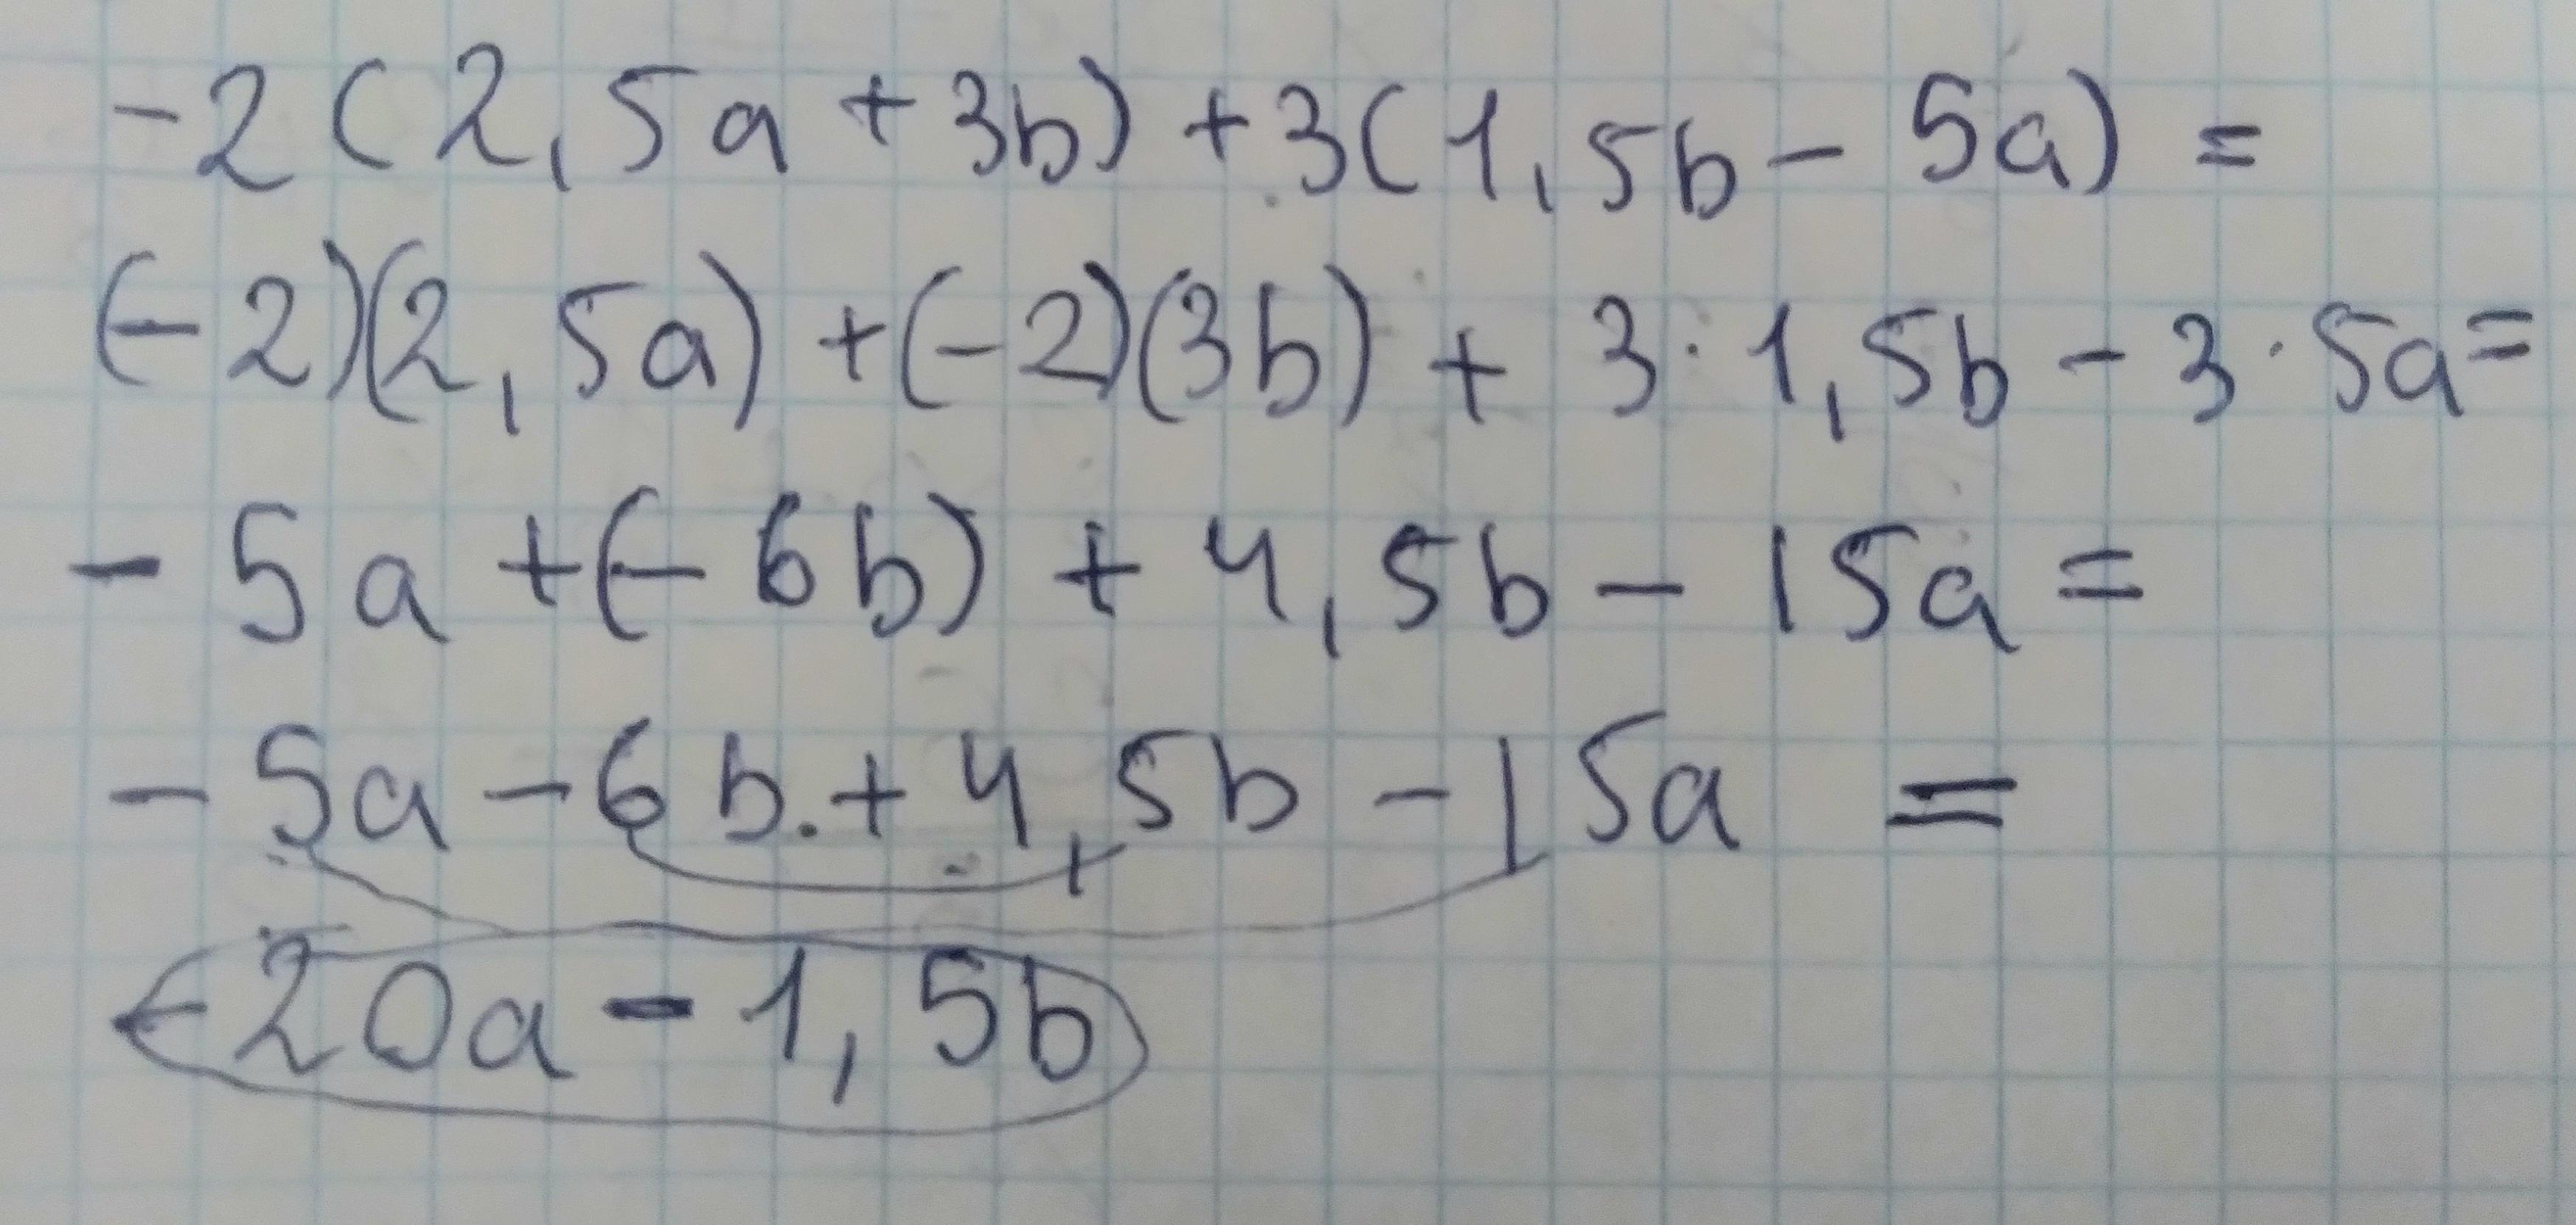 -2(2,5a+3b)+3(1,5b-5a)=
(-2)(2,5a)+(-2)(3b)+3·1,5b-3·5a=
-5a+(-6b)+4,5b-15a=
-5a-6b+4,5b-15a=
-20a-1,5b